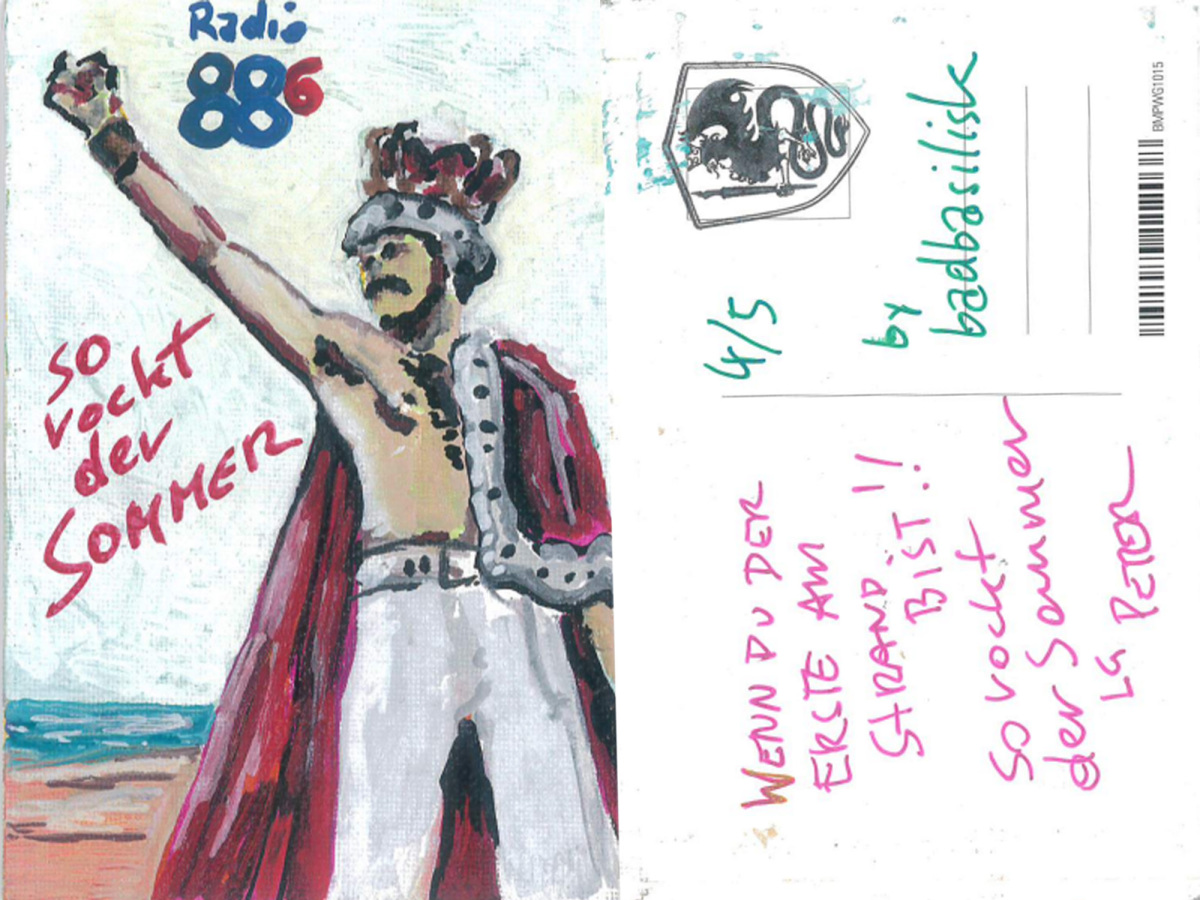 Radio
886
so
rockt
der
SOMMER
4/5
by
badbasilisk
BMPWG1015
WENN DU DER
ERSTE AM
STRAND
BIST!!
So rockt
der Sommer
LG PETER